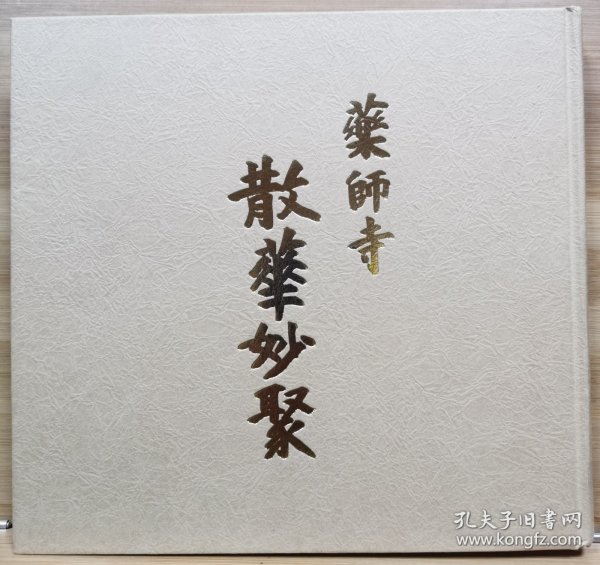 藥師寺
散華妙聚
孔夫子旧书网
www.kongfz.com